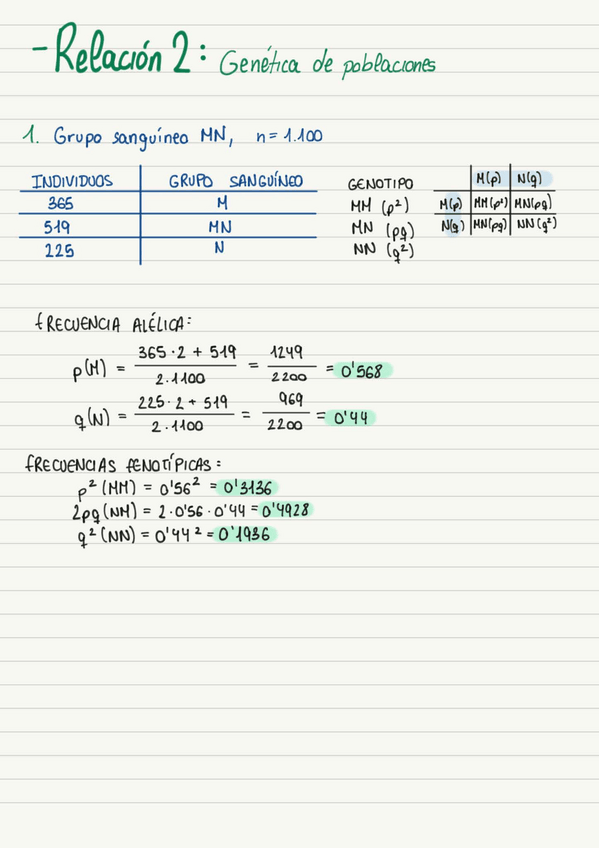 - Relación 2: Genética de poblaciones
1. Grupo sanguíneo MN, n = 1.100
INDIVIDUOS GRUPO SANGUÍNEO
365 M
519 MN
225 N
GENOTIPO
MM (p²)
MN (pq)
NN (q²)
M(p) N(q)
M(p) MM(p²) MN(pq)
N(q) MN(pq) NN(q²)
FRECUENCIA ALÉLICA:
p(M) = 365·2 + 519 / 2·1100 = 1249 / 2200 = 0'568
q(N) = 225·2 + 519 / 2·1100 = 969 / 2200 = 0'44
FRECUENCIAS FENOTÍPICAS:
p² (MM) = 0'56² = 0'3136
2pq (NM) = 2·0'56·0'44 = 0'4928
q² (NN) = 0'44² = 0'1936